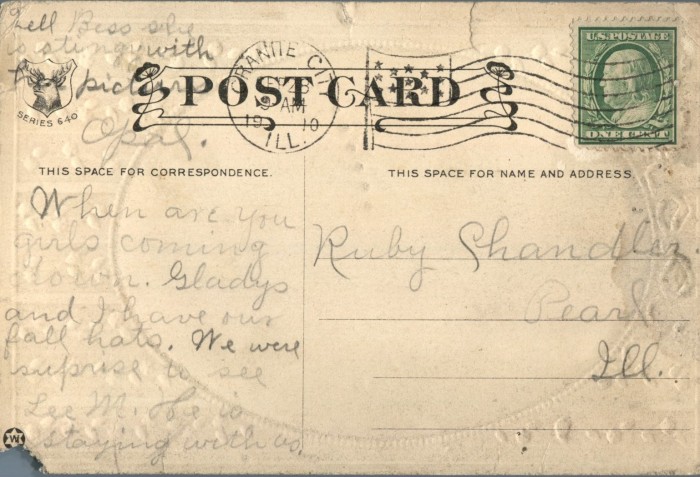 Tell Bess she
is stingy with
picture
Opal.
SERIES 640
POST CARD
GRANITE CITY
AM
1910
ILL.
U.S. POSTAGE
THIS SPACE FOR CORRESPONDENCE.
When are you
girls coming
down. Gladys
and I have our
fall hats. We were
suprise to see
Lee M. He is
staying with us.
W
THIS SPACE FOR NAME AND ADDRESS
Ruby Chandler
Pearl
Ill.